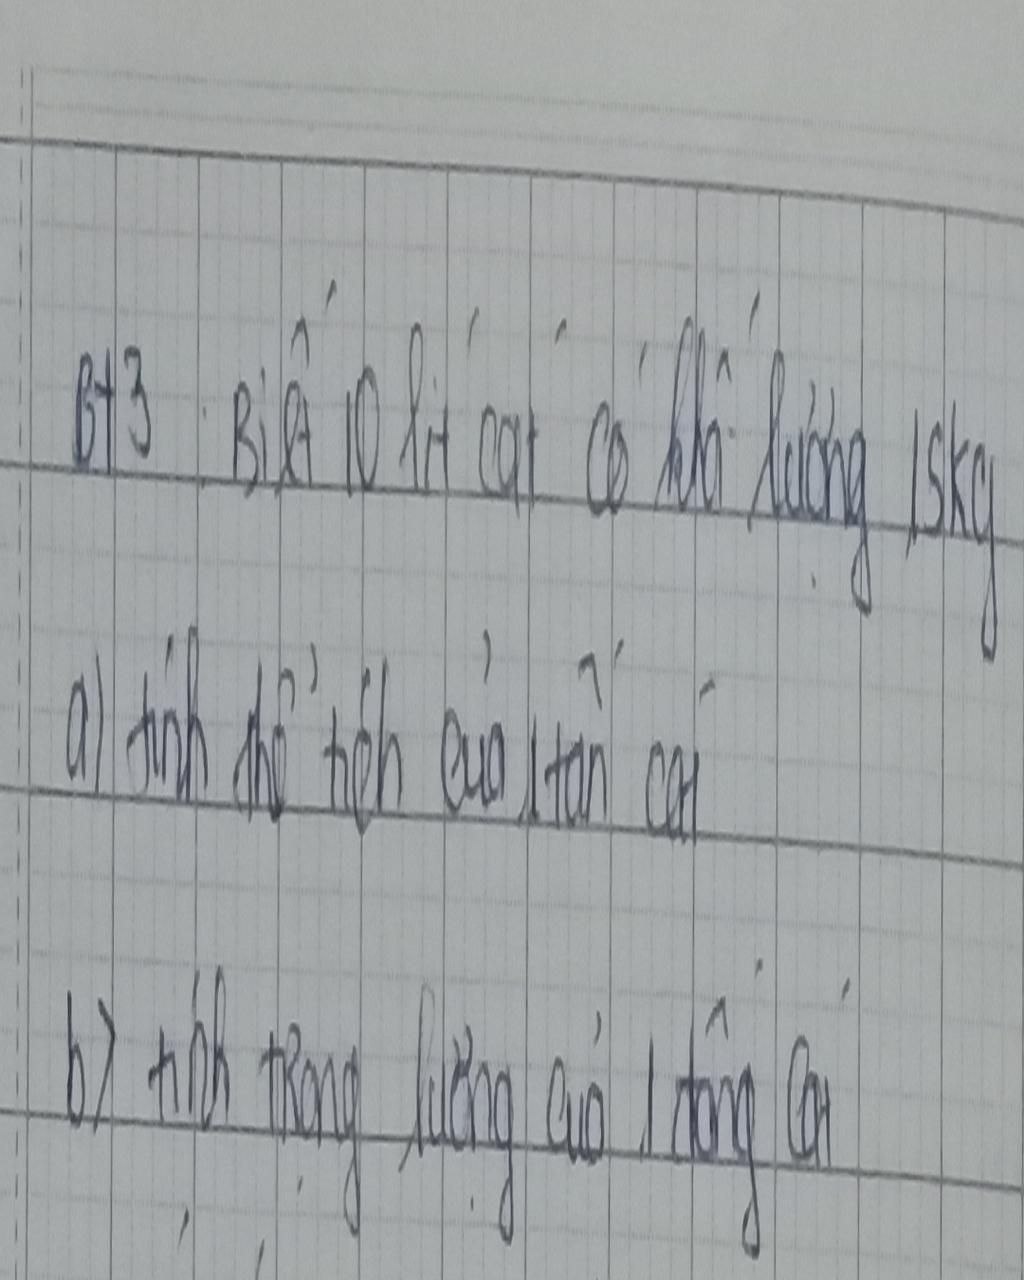 Bt3. Biết 10 lít cát có khối lượng 15kg
a) tính thể tích của 1 tấn cát
b) tính trọng lượng của 1 đống cát